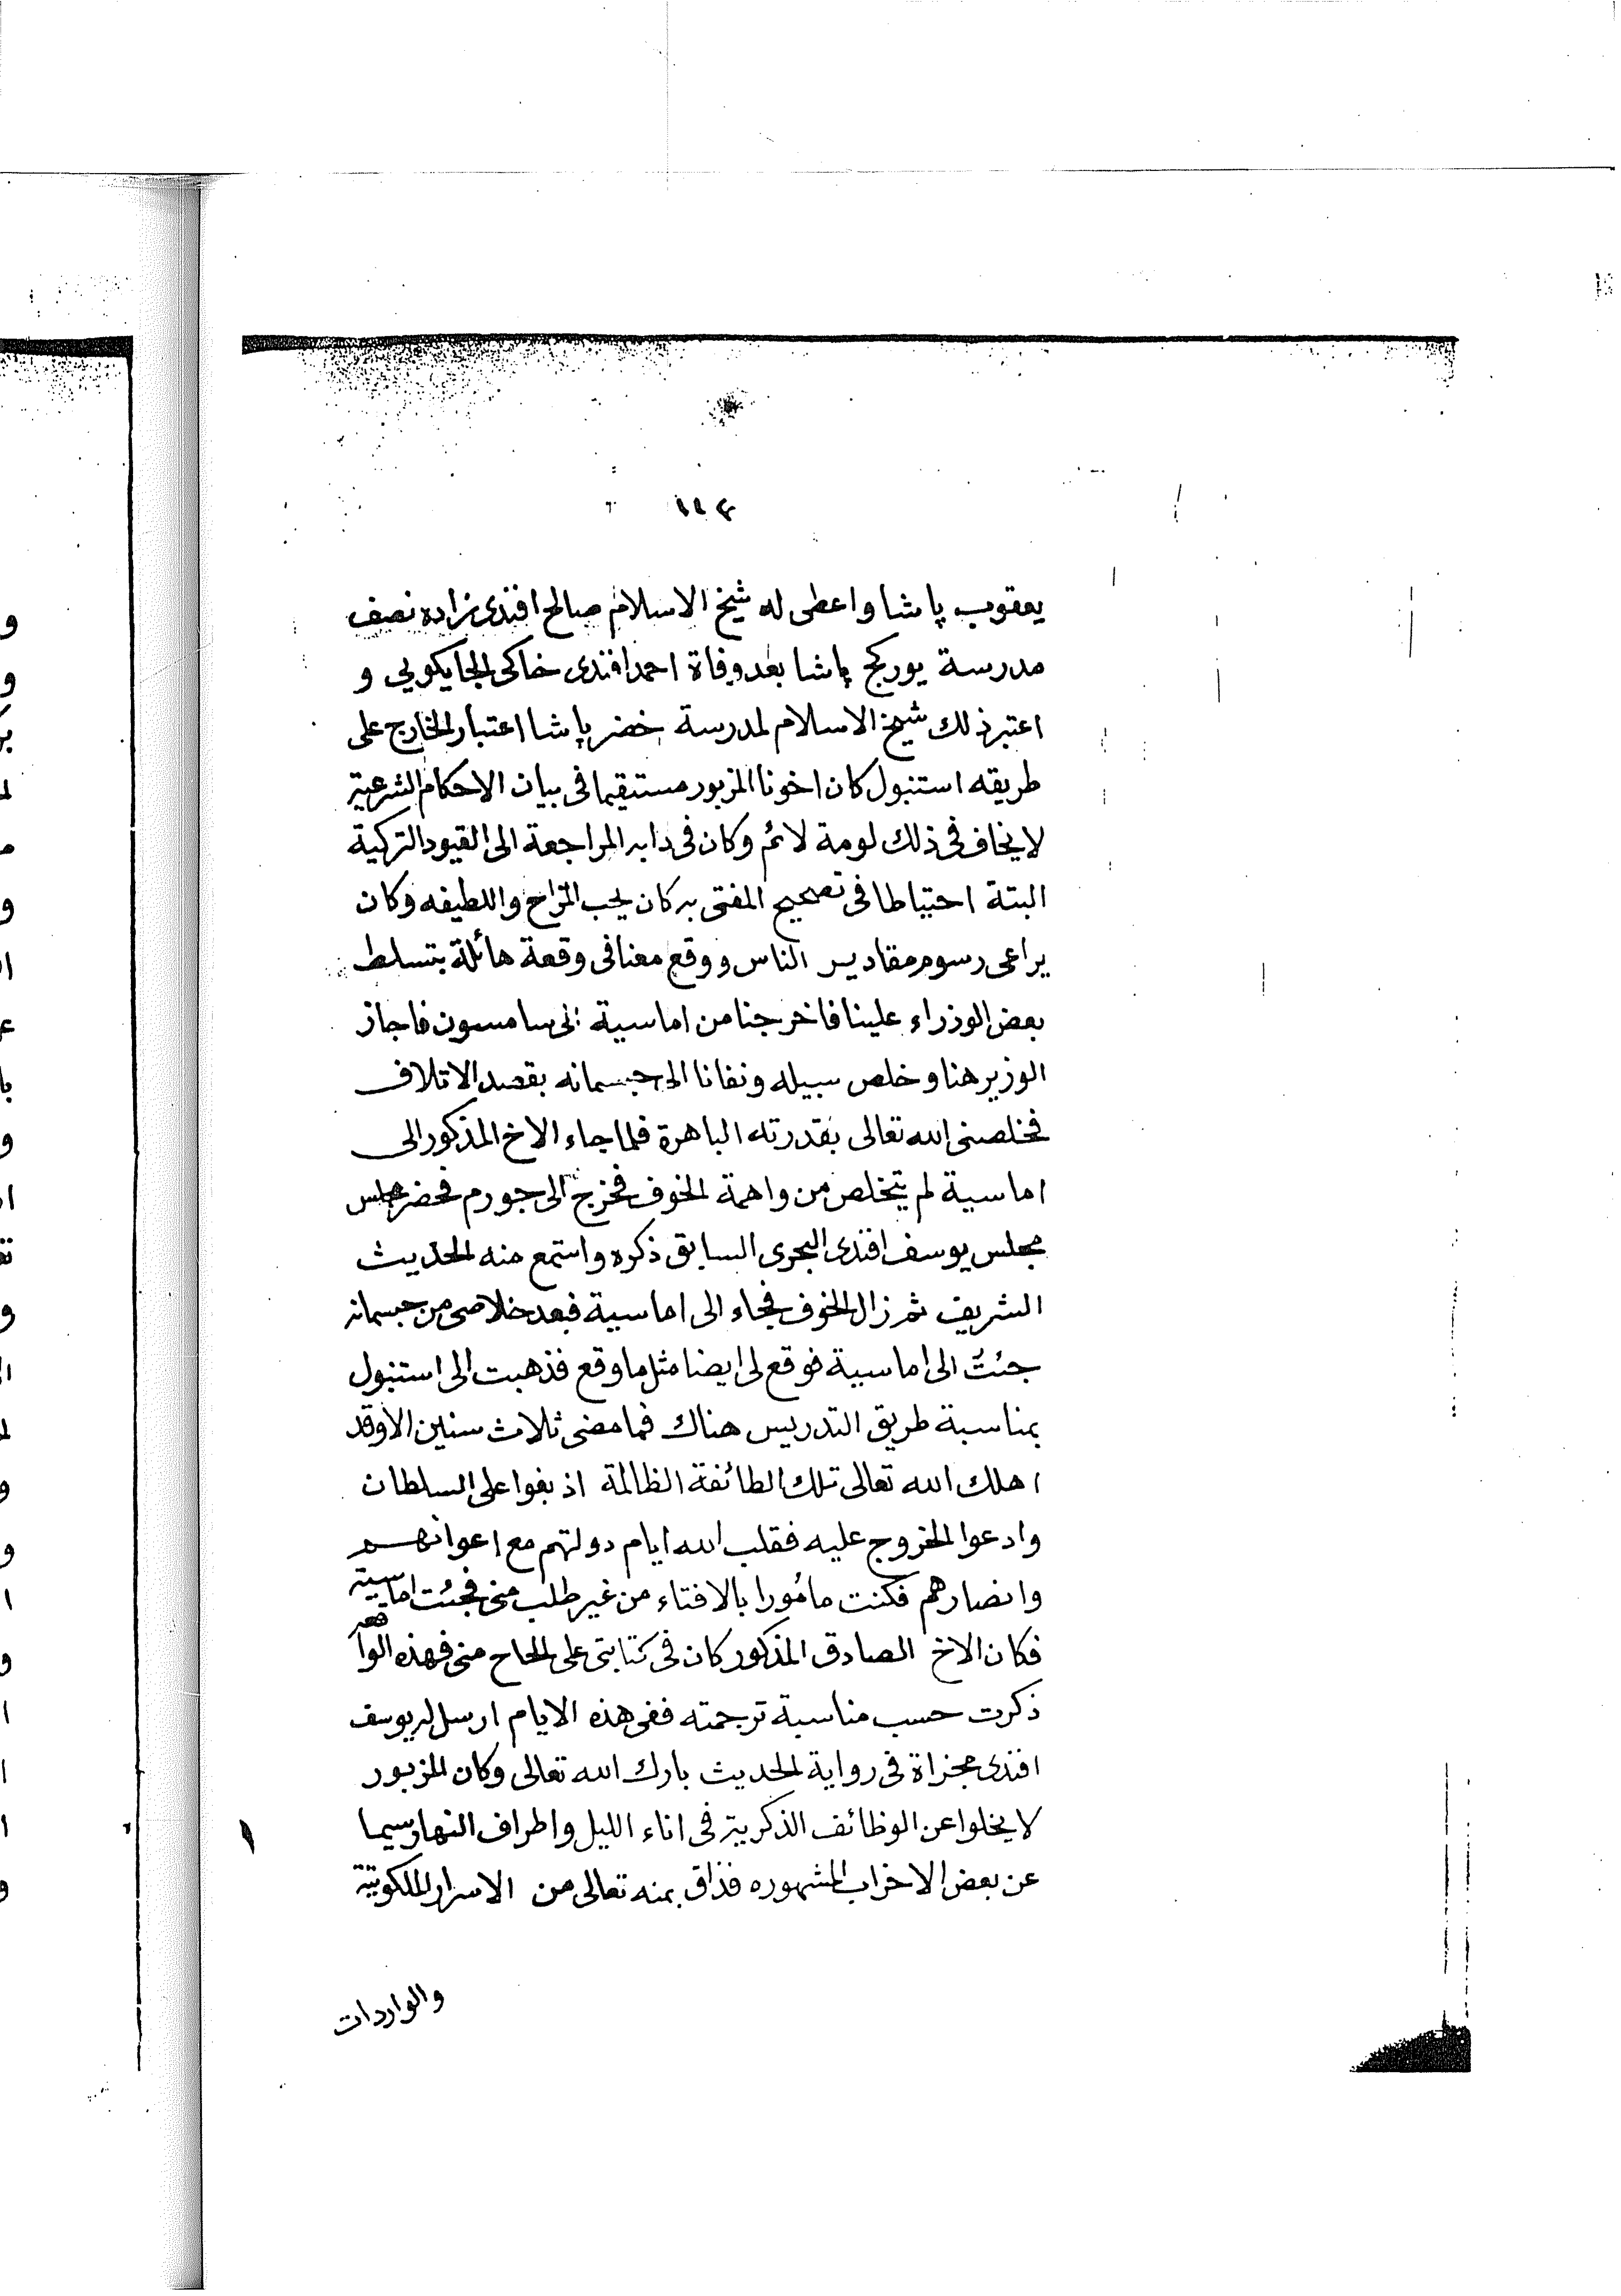 يعقوب پاشا واعطى له شيخ الاسلام صالح افندى زاده نصف
مدرسة يوركج پاشا بعد وفاة احمد افندى خاكى الجايكويى و
اعتبر ذلك شيخ الاسلام لمدرسة خضر پاشا اعتبار الخارج على
طريقه استنبول كان اخونا المزبور مستقيما فى بيان الاحكام الشرعية
لا يخاف فى ذلك لومة لائم وكان فى دابه المراجعة الى القيود التركية
البتة احتياطا فى تصحيح المفتى به كان يحب المزاح واللطيفه وكان
يراعى رسوم مقادير الناس ووقع معنا فى وقعة هائلة بتسلط
بعض الوزراء علينا فاخرجنا من اماسية الى سامسون فاجاز
الوزير هنا وخلص سبيله ونفانا الى حبسمانه بقصد الاتلاف
فخلصنى الله تعالى بقدرته الباهرة فلما جاء الاخ المذكور الى
اماسية لم يتخلص من واهمة الخوف فخرج الى جورم فحضر مجلس
مجلس يوسف افندى البحرى السابق ذكره واستمع منه الحديث
الشريف ثم زال الخوف فجاء الى اماسية فبعد خلاصى من حبسمانه
جئت الى اماسية فوقع لى ايضا مثل ما وقع فذهبت الى استنبول
بمناسبة طريق التدريس هناك فما مضى ثلاث سنين الا وقد
اهلك الله تعالى تلك الطائفة الظالمة اذ بغوا على السلطان
وادعوا الخروج عليه فقلب الله ايام دولتهم مع اعوانهم
وانصارهم فكنت مأمورا بالافتاء من غير طلب منى فجئت اماسية
فكان الاخ الصادق المذكور كان فى كتابتى على الحاح منى فهذه الواقعة
ذكرت حسب مناسبة ترجمته ففى هذه الايام ارسل له يوسف
افندى مجزاة فى رواية الحديث بارك الله تعالى وكان المزبور
لا يخلوا عن الوظائف الذكرية فى اناء الليل واطراف النهار سيما
عن بعض الاخراب المشهوره فذاق بمنه تعالى من الاسرار الملكوتية
والواردات